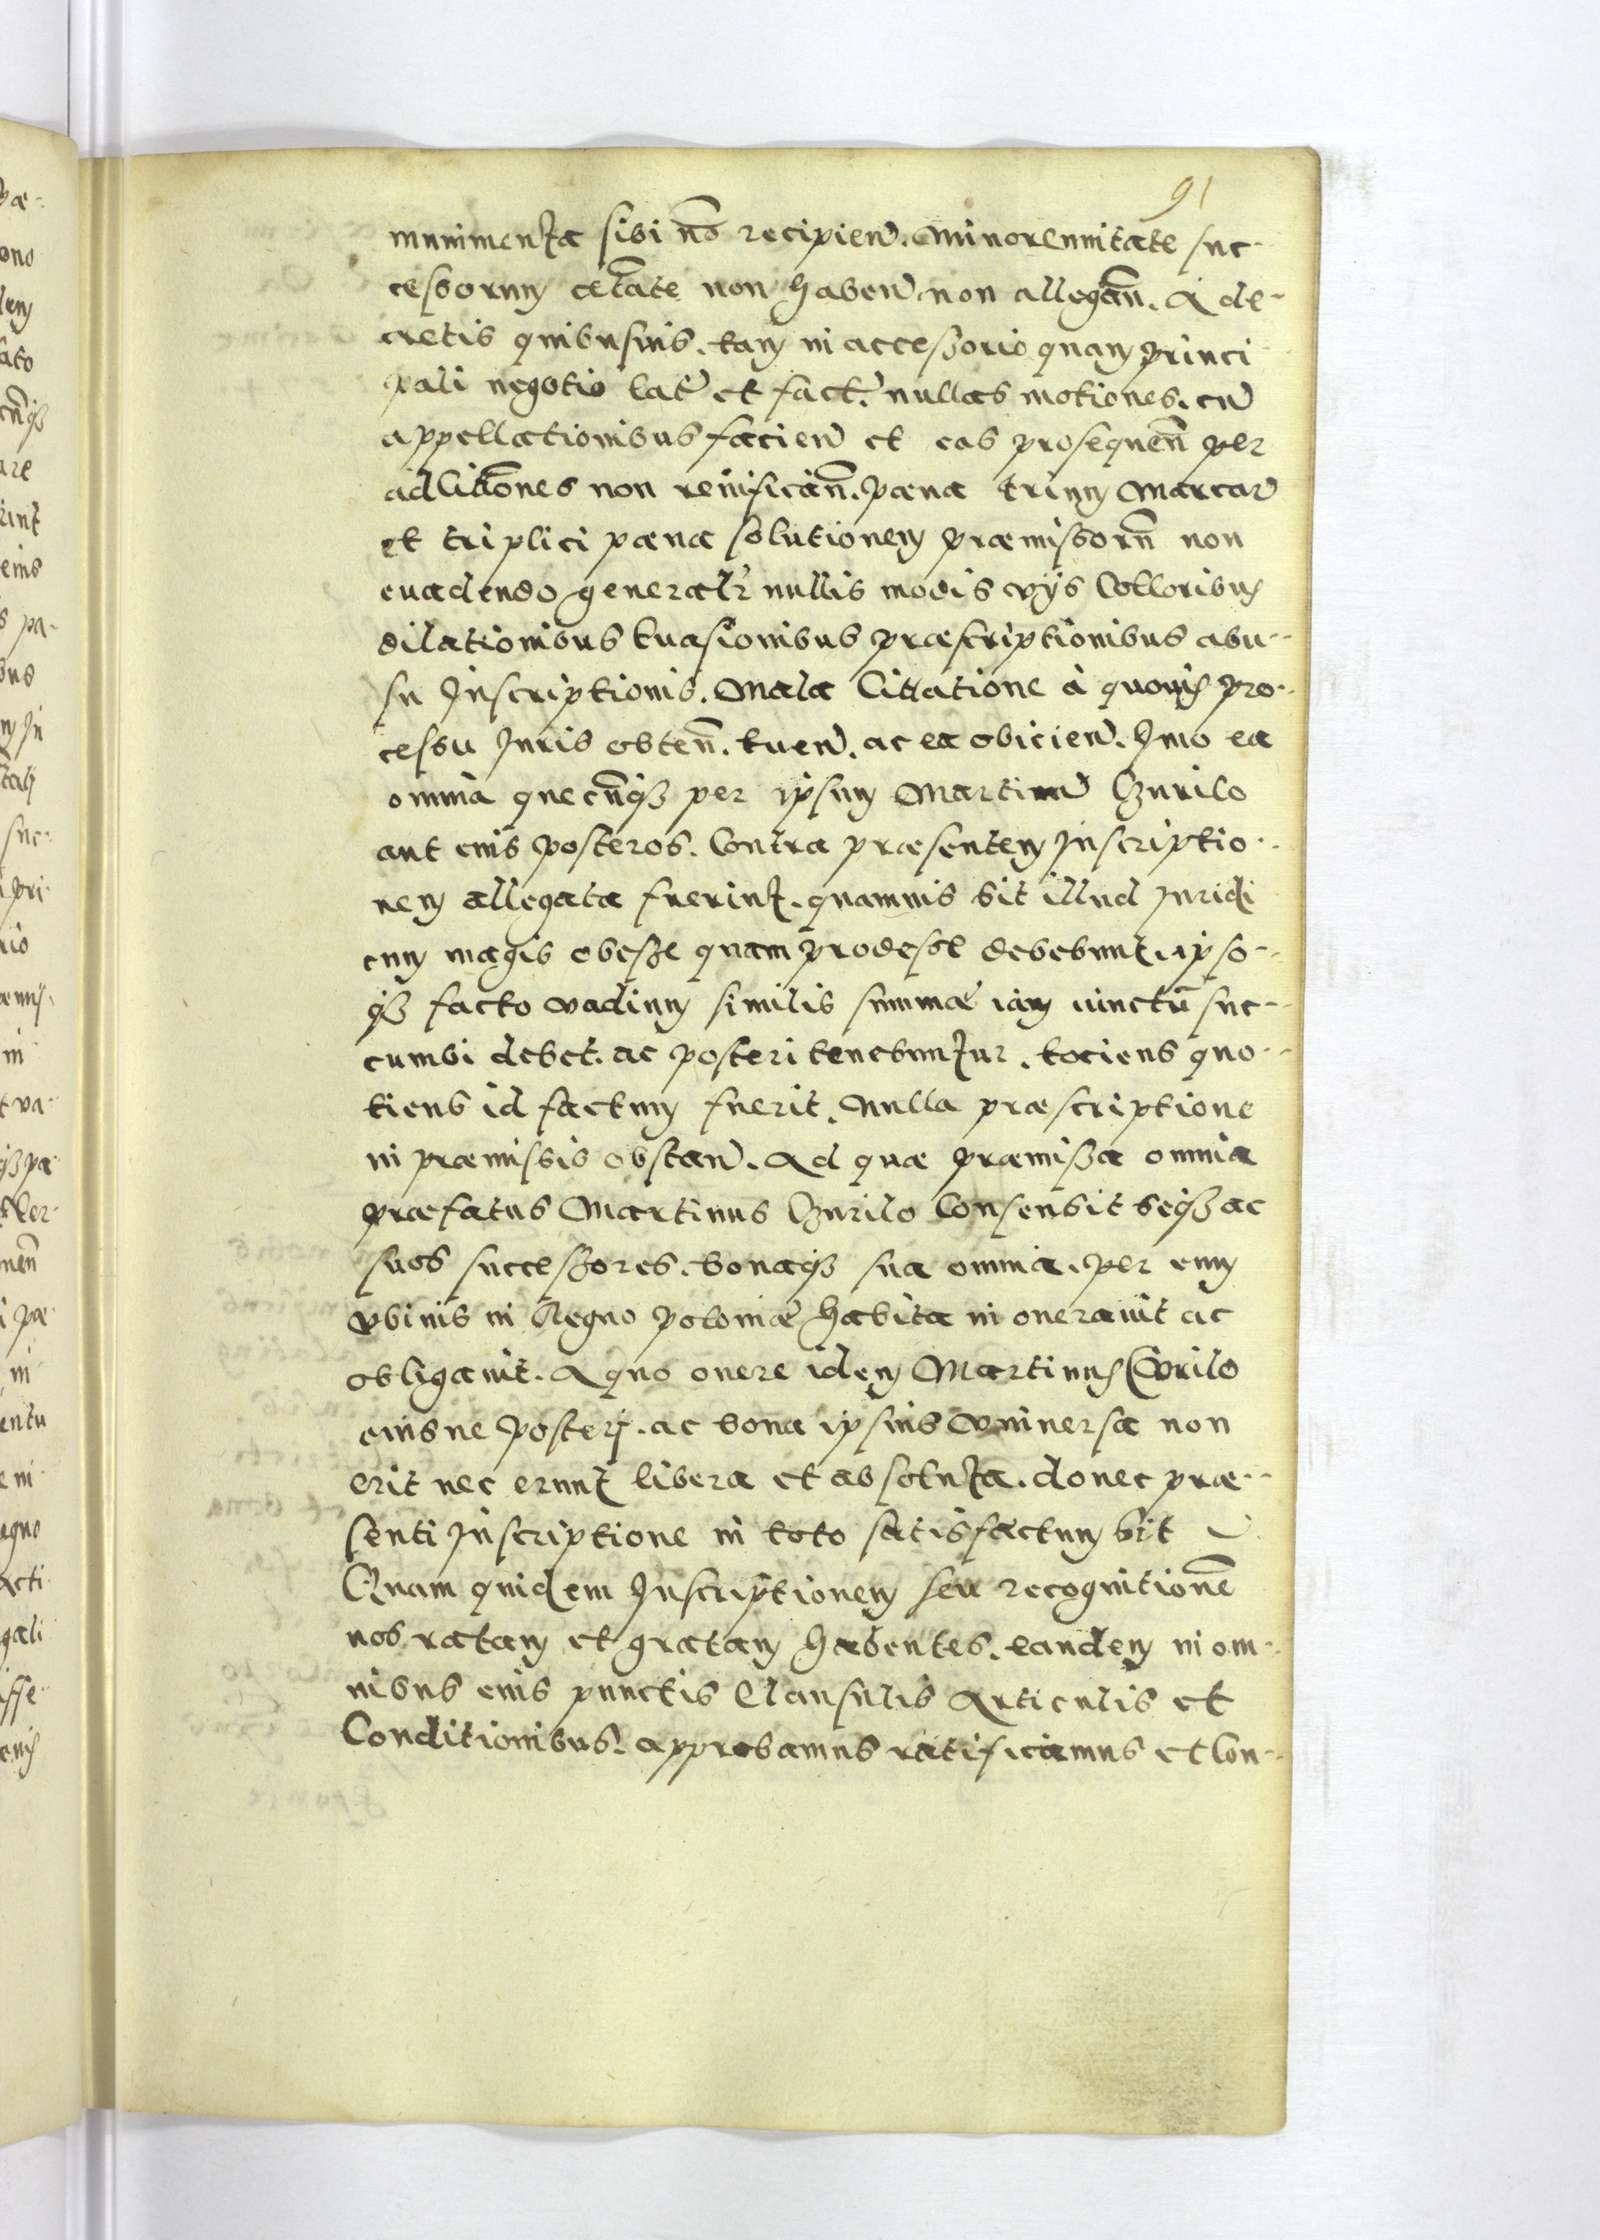 91
munimenta sibi nō recipien̄. Minorennitate suc-
cessorum ætate non haben̄ non allegan̄. A de-
cretis quibusuis. tam in accessorio quam princi
pali negotio lat̄ et fact̄. nullas motiones. cū
appellationibus facien̄ et eas prosequen̄ per
adcitt̄ones non reiificān. pæna trium Marcar̄
et triplici pæna solutionem præmissorū non
euadendo generalr̄ nullis modis vijs Colloribus
dilationibus euasionibus præscriptionibus abu-
su Inscriptionis. Mala Citatione à quouis pro-
cessu Iuris obten̄. tuen̄. ac ea obicien̄. Imo ea
omnia quecūq; per ipsum Martinū Czurilo
aut eius posteros. Contra præsentem Inscriptio-
nem allegata fuerint. quamuis sit illud Iuridi
cum magis obesse quam prodesse debebunt. ipso-
q; facto vadium similis summæ iam iunctū suc-
cumbi debet. ac posteri tenebuntur. tociens quo-
tiens id factum fuerit. Nulla præscriptione
in præmissis obstan̄. Ad quæ præmissa omnia
præfatus Martinus Czurilo Consensit seq; ac
suos successores. bonaq; sua omnia. per eum
vbiuis in Regno Poloniæ habita in onerauit ac
obligauit. A quo onere idem Martinus Czurilo
eiusue posterj. ac bona ipsius Vniuersa non
erit nec erunt libera et absoluta. donec præ-
senti Inscriptione in toto satisfactum sit
Quam quidem Inscriptionem seu recognitionē
nos ratam et gratam habentes. eandem in om-
nibus eius punctis Clausulis Articulis et
Conditionibus. approbamus ratificamus et Con-